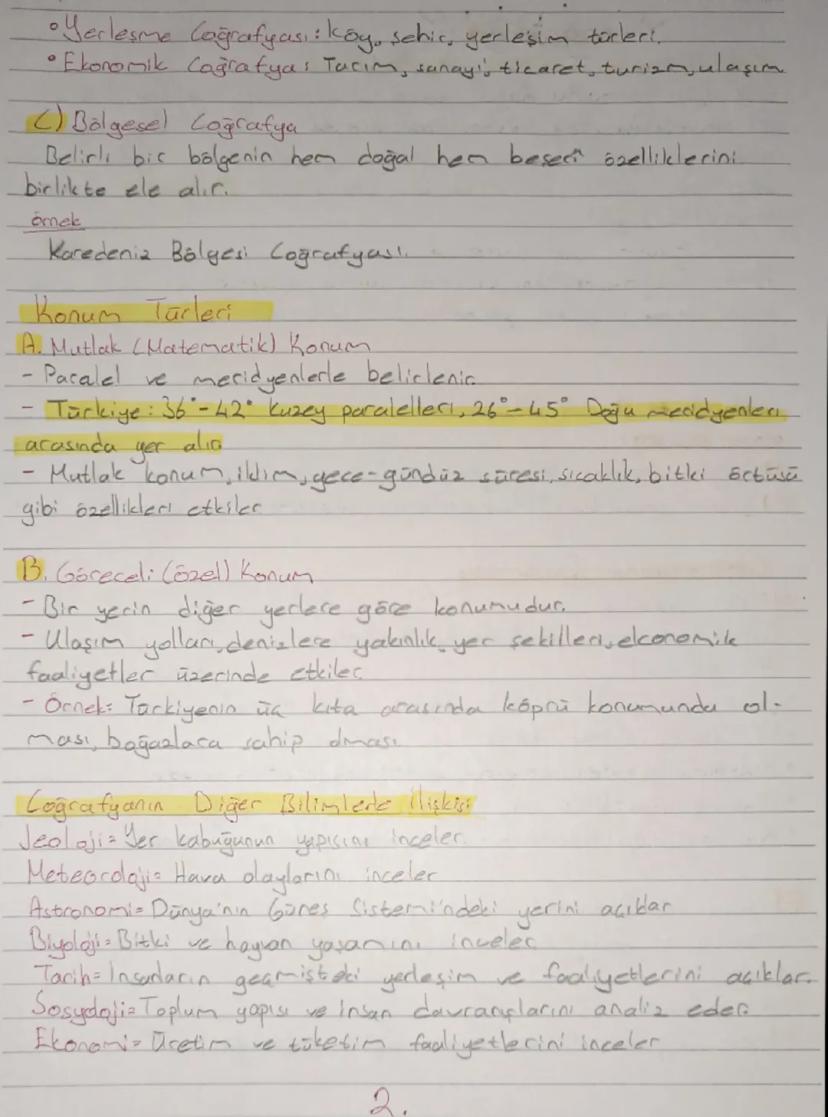 ° Yerleşme Coğrafyası: Köy, şehir, yerleşim türleri.
° Ekonomik Coğrafya: Tarım, sanayi, ticaret, turizm, ulaşım
C) Bölgesel Coğrafya
Belirli bir bölgenin hem doğal hem beşeri özelliklerini
birlikte ele alır.
örnek
Karedeniz Bölgesi Coğrafyası.
Konum Türleri
A. Mutlak (Matematik) Konum
- Paralel ve meridyenlerle belirlenir.
- Türkiye: 36° - 42° kuzey paralelleri, 26° - 45° Doğu meridyenleri
arasında yer alır
- Mutlak konum, iklim, gece-gündüz süresi, sıcaklık, bitki örtüsü
gibi özellikleri etkiler
B. Göreceli (özel) Konum
- Bir yerin diğer yerlere göre konumudur.
- Ulaşım yolları, denizlere yakınlık, yer şekilleri, ekonomik
faaliyetler üzerinde etkiler
- Örnek: Türkiyenin üç kıta arasında köprü konumunda ol-
ması, boğazlara sahip olması
Coğrafyanın Diğer Bilimlerle İlişkisi
Jeoloji = Yer kabuğunun yapısını inceler.
Meteoroloji = Hava olaylarını inceler
Astronomi = Dünya'nın Güneş Sistemi'ndeki yerini açıklar
Biyoloji = Bitki ve hayvan yaşamını inceler
Tarih = İnsanların geçmişteki yerleşim ve faaliyetlerini açıklar.
Sosyoloji = Toplum yapısı ve insan davranışlarını analiz eder.
Ekonomi = Üretim ve tüketim faaliyetlerini inceler
2.